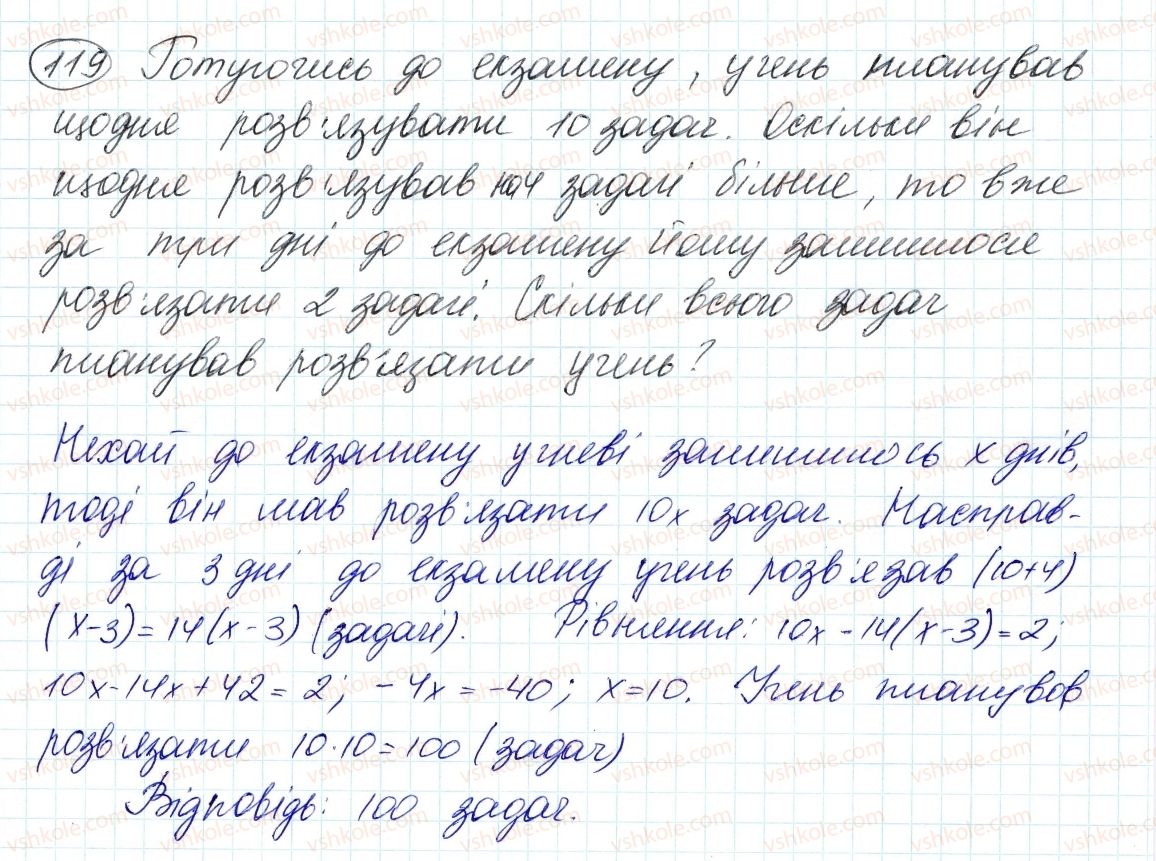 119 Готуючись до екзамену, учень планував
щодня розв'язувати 10 задач. Оскільки він
щодня розв'язував на 4 задачі більше, то вже
за три дні до екзамену йому залишилося
розв'язати 2 задачі. Скільки всього задач
планував розв'язати учень?
Нехай до екзамену учневі залишилось x днів,
тоді він мав розв'язати 10x задач. Насправ-
ді за 3 дні до екзамену учень розв'язав (10+4)
(x-3)=14(x-3) (задачі). Рівняння: 10x-14(x-3)=2;
10x-14x+42=2; -4x=-40; x=10. Учень планував
розв'язати 10·10=100 (задач)
Відповідь: 100 задач.